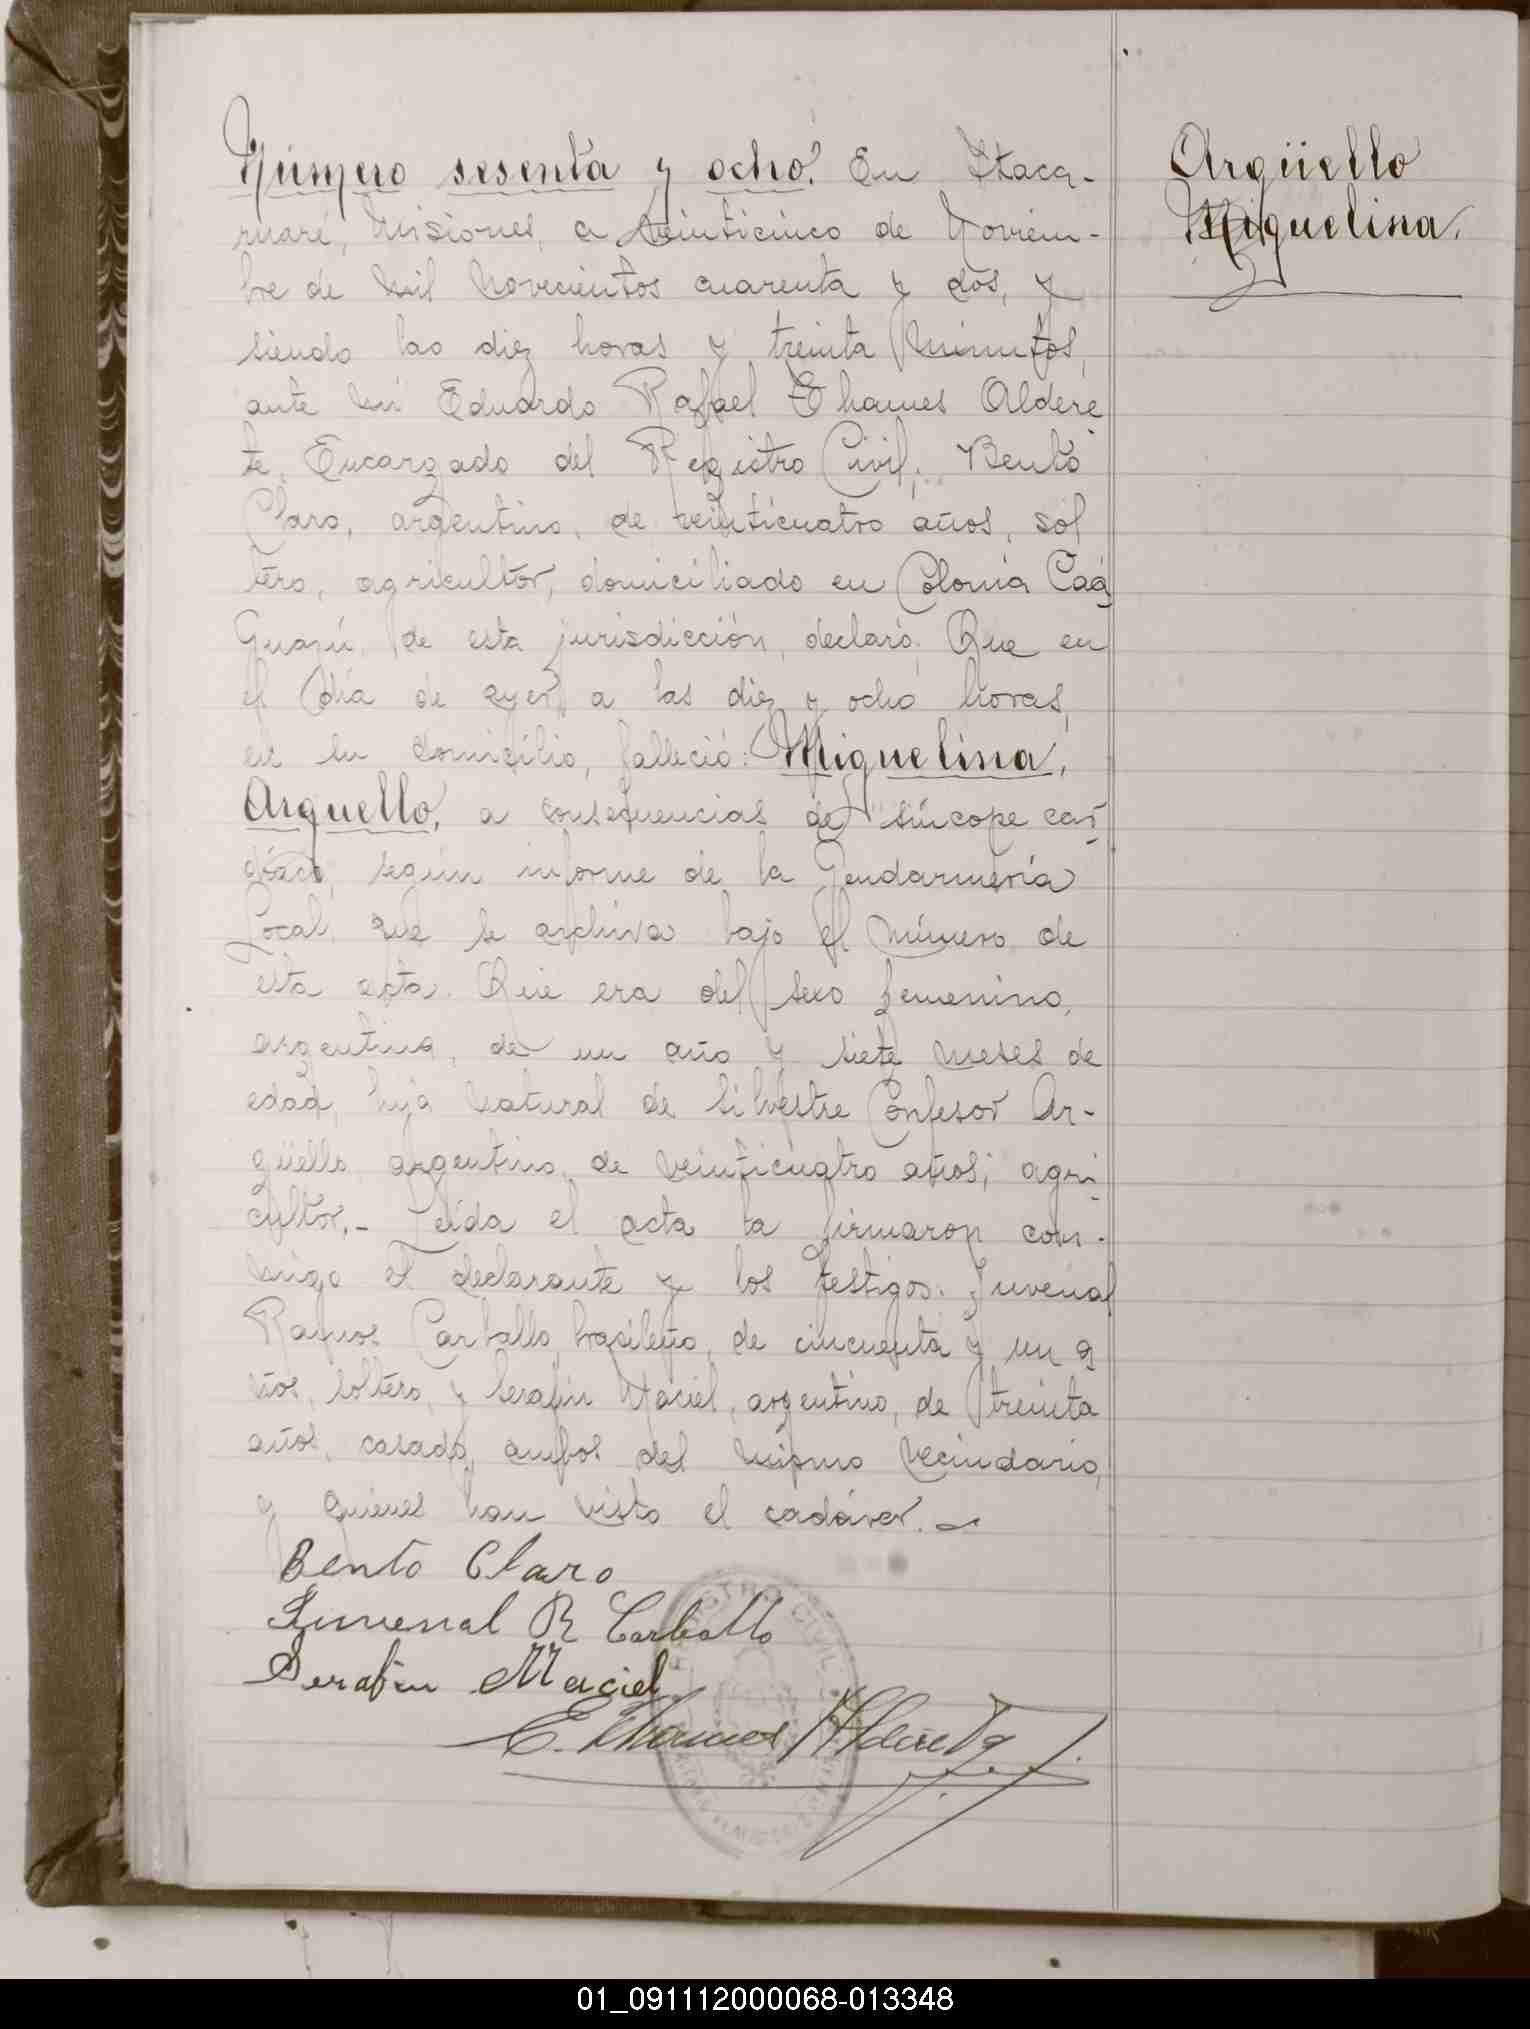 Número sesenta y ocho. En Itaca-
ruaré, Misiones, a veinticinco de Noviem-
bre de mil novecientos cuarenta y dos, y
siendo las diez horas y treinta minutos,
ante mí Eduardo Rafael Ehames Aldere
te, Encargado del Registro Civil, Bento
Claro, argentino, de veinticuatro años, sol
tero, agricultor, domiciliado en Colonia Caá
Guazú, de esta jurisdicción, declaró: Que en
el día de ayer, a las diez y ocho horas,
en su domicilio, falleció: Miquelina,
Arguello, a consequencias de síncope car
díaco, según informe de la Gendarmería
Local, que se archiva bajo el número de
esta acta. Que era del sexo femenino,
argentina, de un año y siete meses de
edad, hija natural de Silvestre Confesor Ar-
güello, argentino, de veinticuatro años, agri
cultor.- Leída el acta la firmaron con-
migo el declarante y los testigos: Juvenal
Ramos Carballo, brasileño, de cincuenta y un a
ños, soltero, y Serafin Maciel, argentino, de treinta
años, casado, ambos del mismo vecindario,
y quienes han visto el cadáver.
Bento Claro
Juvenal R Carballo
Serafin Maciel
E. Ehames Alderete
Argüello
Miquelina.
REGISTRO CIVIL
01_091112000068-013348